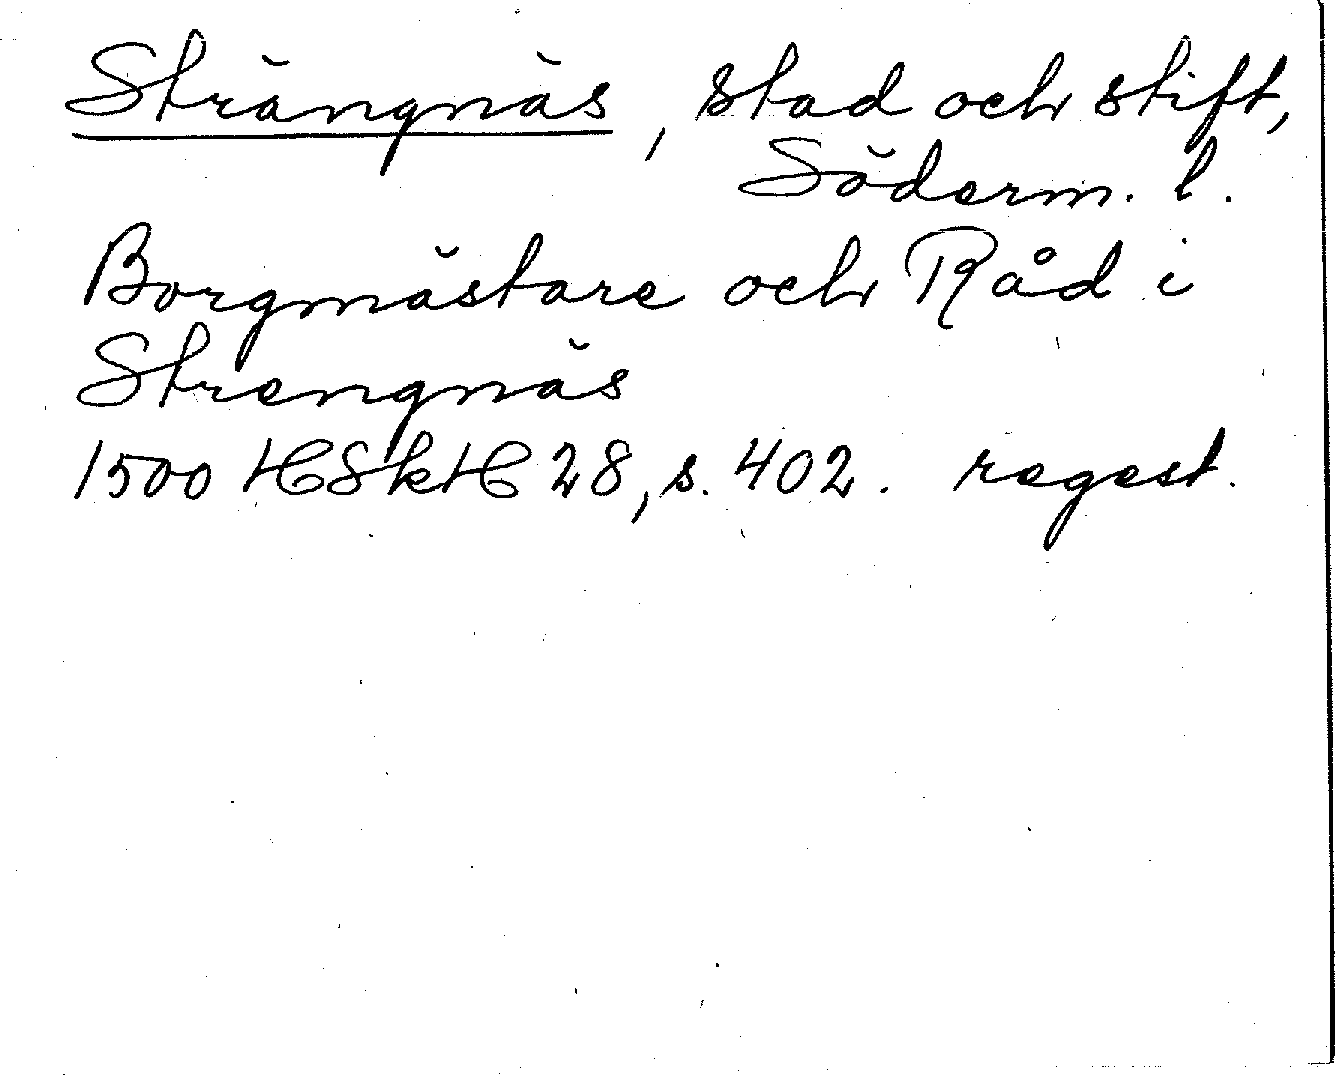 Strängnäs, stad och stift,
Söderm. l.
Borgmästare och Råd i
Strengnäs
1500 HSkH 28, s. 402. regest.